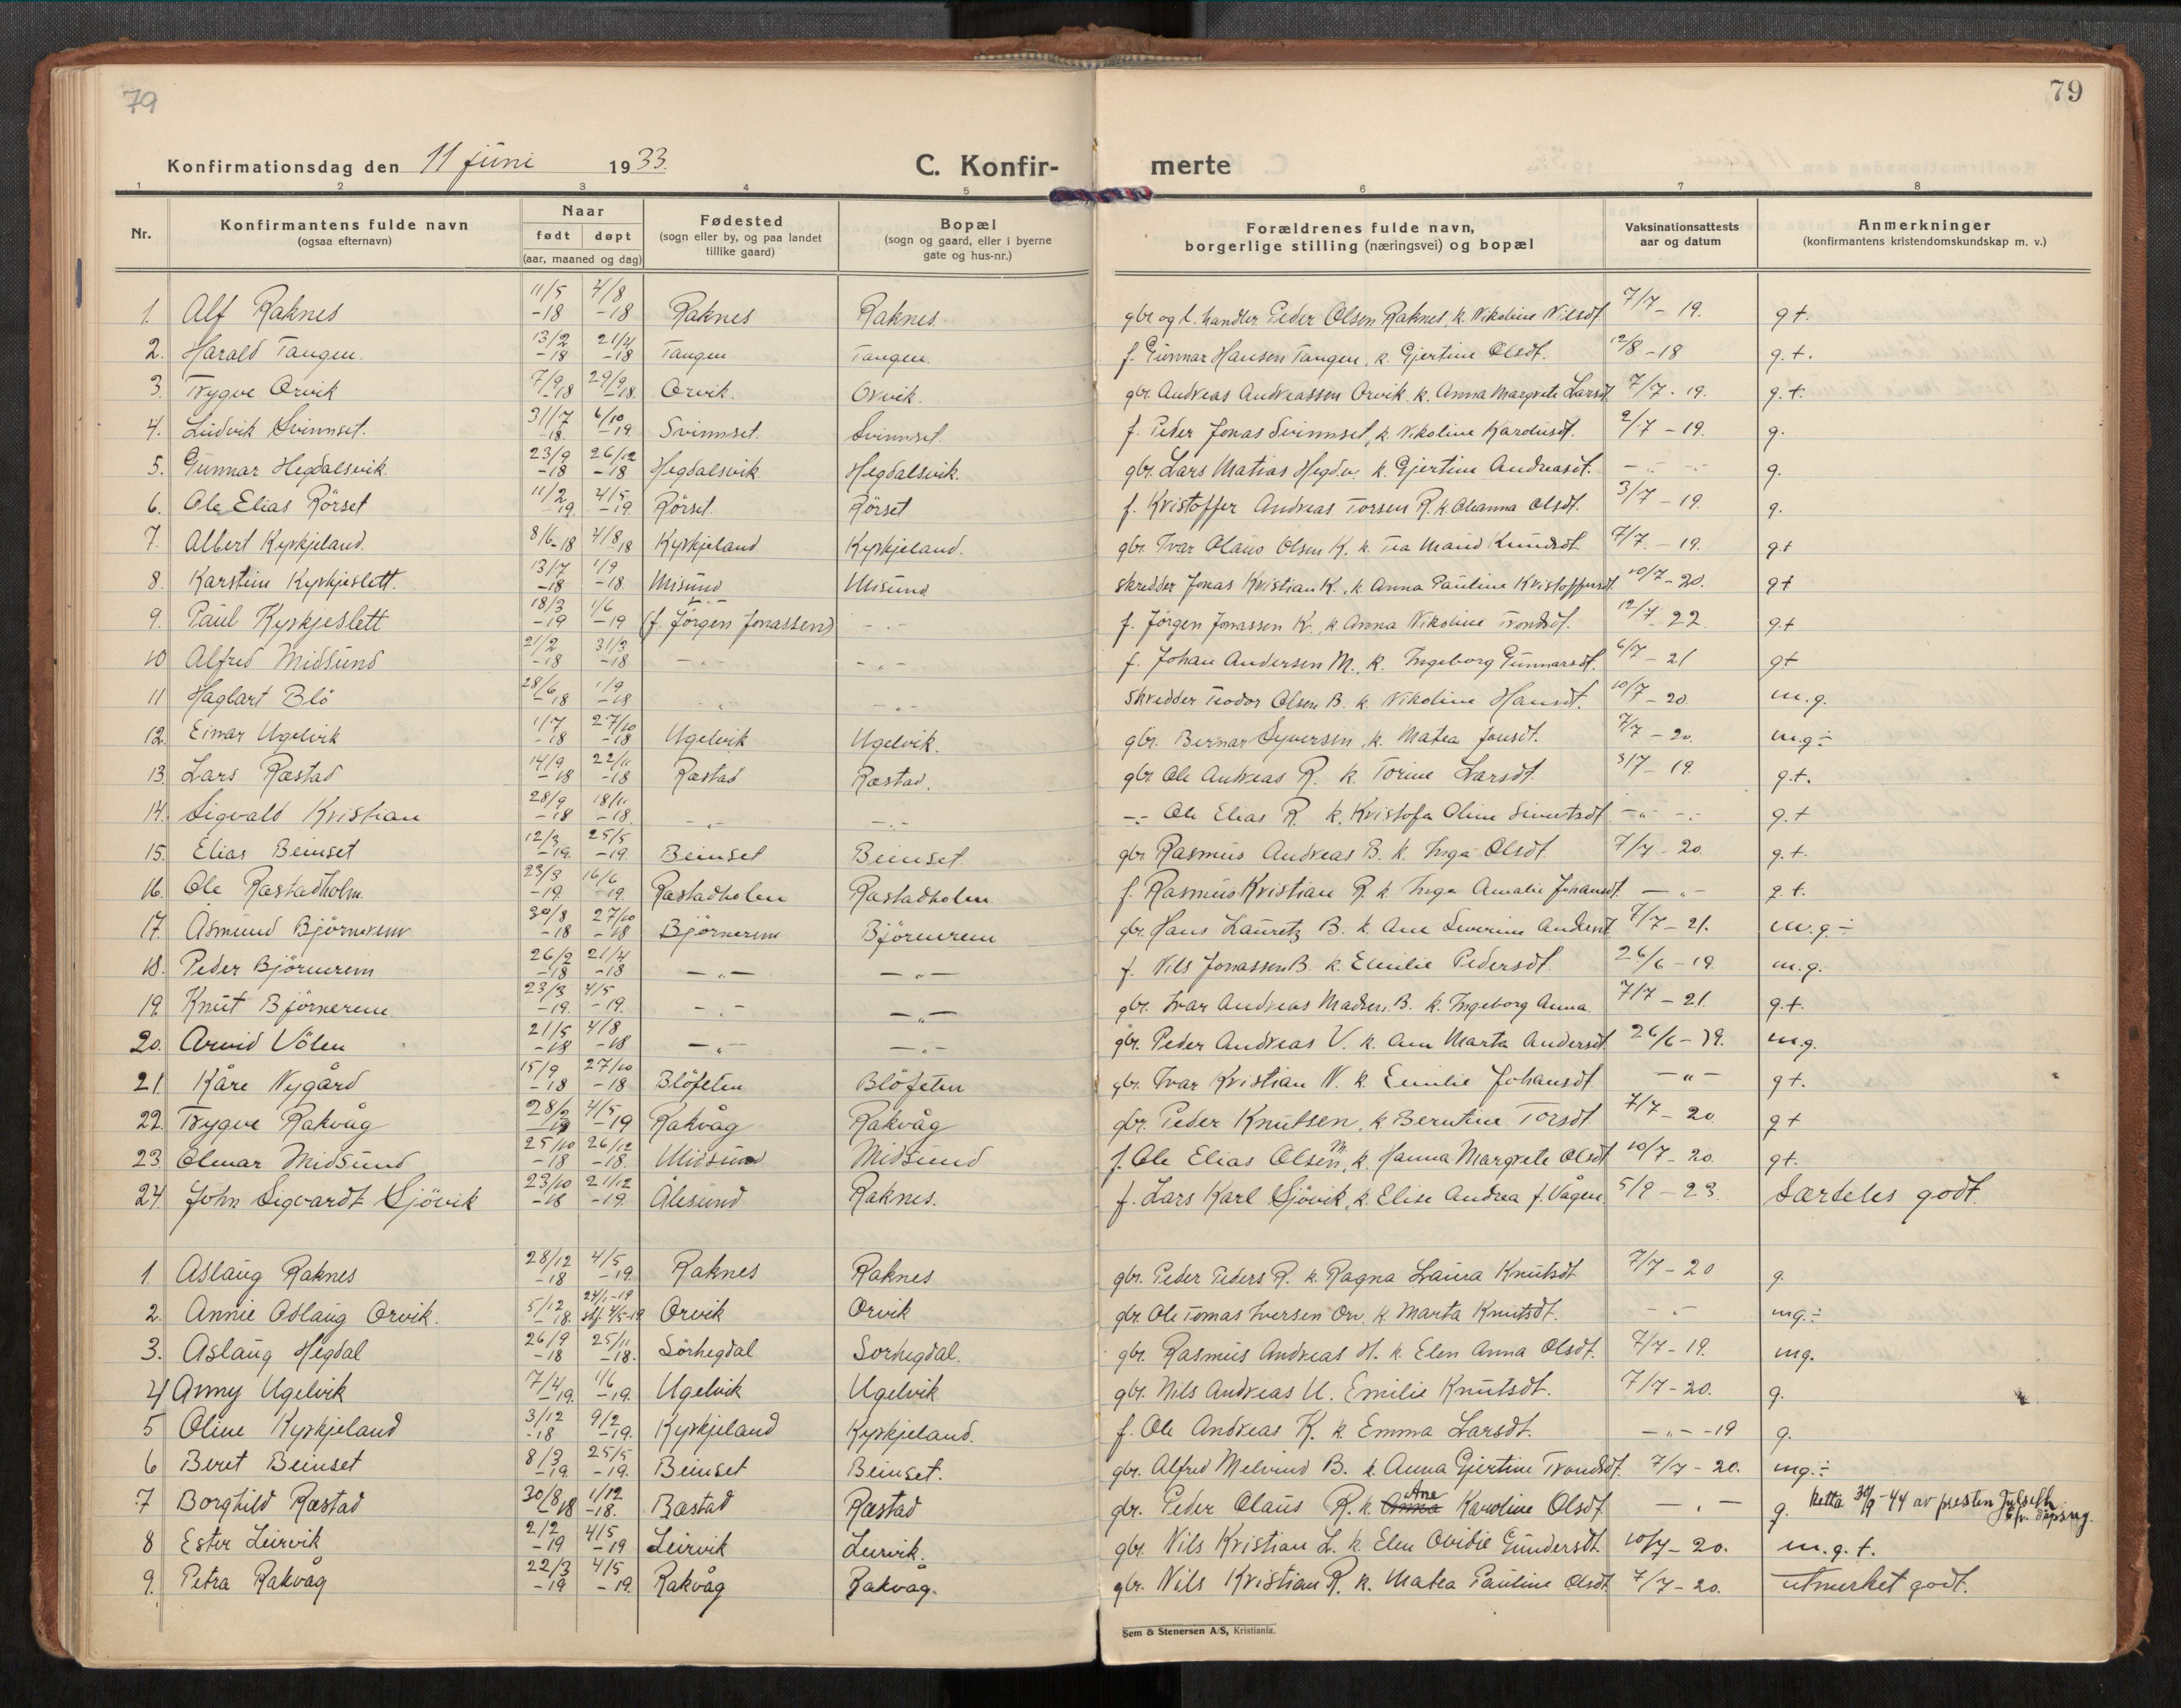 79
79
Konfirmationsdag den 11 juni 1933.
C. Konfir-
merte
1 2 3 4 5 6 7 8
Nr.
Konfirmantens fulde navn
(ogsaa efternavn)
Naar
født døpt
(aar, maaned og dag)
Fødested
(sogn eller by, og paa landet
tillike gaard)
Bopæl
(sogn og gaard, eller i byerne
gate og hus-nr.)
Forældrenes fulde navn,
borgerlige stilling (næringsvei) og bopæl
Vaksinationsattests
aar og datum
Anmerkninger
(konfirmantens kristendomskundskap m. v.)
1. Alf Raknes 11/5 -18 4/8 -18 Raknes Raknes. gbr og l. handler Peder Olsen Raknes, k. Nikoline Nilsdt. 7/7 - 19. g t.
2. Harald Tangen. 13/2 -18 21/4 -18 Tangen Tangen. f. Gunnar Hansen Tangen, k. Gjertine Olsdt. 12/8 -18 g. t.
3. Trygve Orvik 7/9 -18 29/9 -18. Orvik. Orvik. gbr. Andreas Andreassen Orvik. k. Anna Margrete Larsdt 7/7 - 19. g. t.
4. Ludvik Svinnset. 31/7 -18. 6/10 -19 Svinnset. Svinnset. f. Peder Jonas Svinnset, k. Nikoline Karolusdt. 2/7 - 19. g.
5. Gunnar Hegdalsvik. 23/9 -18 26/12 -18 Hegdalsvik. Hegdalsvik. gbr. Lars Matias Hegdv. k. Gjertine Andreasdt. - " - g.
6. Ole Elias Rörset 11/2 -19. 4/5 -19 Rörset. Rörset f. Kristoffer Andreas Torsen R. k. Oleanna Olsdt. 3/7 - 19. g.
7. Albert Kyrkjeland. 8/6 -18 4/8 18 Kyrkjeland Kyrkjeland. gbr. Ivar Olaus Olsen K. k. Tea Maria Knudsdt 7/7. - 19. g.t
8. Karstein Kyrkjeslett. 13/7 -18 1/9 -18. Misund Misund skredder Jonas Kristian K., k. Anna Pauline Kristoffersdt 10/7 - 20. g t
9. Paul Kyrkjeslett 18/3 -19 1/6 -19 (f. Jörgen Jonassen) - " - f. Jörgen Jonassen K., k. Anna Nikoline Trondsdt. 12/7 - 22. g.t
10 Alfred Midsund 21/2 -18 31/3 -18 - " - - " - f. Johan Andersen M., k. Ingeborg Gunnarsdt. 6/7 - 21 g t
11 Hagbart Blö 28/6 -18 1/9 -18 - " - - " - skredder Teodor Olsen B. k. Nikoline Hansdt. 10/7 - 20. m. g.
12. Einar Ugelvik 1/7 -18 27/10 -18 Ugelvik Ugelvik. gbr. Bernar Syversen, k. Matea Jonsdt. 7/7 - 20. m.g ÷
13. Lars Rastad 14/9 -18 22/11 -18 Rastad Rastad. gbr Ole Andreas R. k. Torine Larsdt. 3/7 - 19. g.t.
14. Sigvald Kristian 28/9 -18 18/11 -18. - " - - " - -"- Ole Elias R. k. Kristofa Oline Sivertsdt - " - g.t
15. Elias Beinset 12/3 -19. 25/5 -19. Beinset Beinset. gbr. Rasmus Andreas B. k. Inga Olsdt. 7/7 - 20. g. t.
16. Ole Rastadholm. 23/3 -19. 16/6 19. Rastadholm Rastadholm. f. Rasmus Kristian R. k. Inga Amalie Johansdt. - " - g. t.
17. Asmund Björnerem 30/8 -18 27/10 -18 Björnerem Björnerem gbr. Hans Lauretz B. k. Ane Severine Andersdt 7/7 - 21. m. g. ÷
18. Peder Björnerem 26/2 -18 21/4 -18 - " - - " - f. Nils Jonassen B. k. Emilie Pedersdt. 26/6 - 19. m. g.
19. Knut Björnerem. 23/3 -19. 4/5 -19. - " - - " - gbr. Ivar Andreas Madsen B. k. Ingeborg Anna. 7/7 - 21. g.t.
20. Arvid Völen 21/5 -18 4/8 -18 - " - - " - gbr. Peder Andreas V. k. Ann Marta Andersdt. 26/6 - 19. m.g.
21. Kåre Nygård 15/9 -18 27/10 -18 Blöfeten Blöfeten gbr. Ivar Kristian N. k. Emilie Johansdt - " - g t.
22. Trygve Rakvåg 28/2 -19 4/5 -19 Rakvåg Rakvåg gbr. Peder Knutsen, k. Berntine Torsdt. 7/7 - 20 g t
23. Olmar Midsund 25/10 -18 26/12 -18. Midsund Midsund f. Ole Elias Olsen M., k. Hanna Margrete Olsdt 10/7 - 20. g t.
24. John Sigvardt Sjövik 23/10 -18 21/12 -19. Ålesund Raknes. f. Lars Karl Sjövik, k. Elise Andrea f. Vågen. 5/9 - 23. Særdeles godt.
1. Aslaug Raknes 28/12 -18 4/5 -19 Raknes Raknes gbr. Peder Peders R. k. Ragna Laura Knutsdt 7/7 - 20 g.
2. Annie Odlaug Orvik. 5/12 -18. 24/1 -19 stf. 4/5-19 Orvik Orvik gbr. Ole Tomas Iversen Orv. k. Marta Knutsdt. - " - mg. ÷
3. Aslaug Hegdal 26/9 -18 25/11 -18. Sörhegdal Sorhegdal. gbr. Rasmus Andreas H. k. Elen Anna Olsdt. 7/7 - 19. mg.
4 Anny Ugelvik 17/4 -19. 1/6 -19. Ugelvik Ugelvik gbr. Nils Andreas U. Emilie Knutsdt. 7/7 - 20. g.
5 Oline Kyrkjeland 3/12 -18 9/2 -19. Kyrkjeland Kyrkjeland. f. Ole Andreas K. k Emma Larsdt. - " - -19 g.
6 Beret Beinset 8/3 -19. 25/5 -19. Beinset Beinset. gbr. Alfred Melvind B. k. Anna Gjertine Trondsdt. 7/7 - 20. mg. ÷
7 Borghild Rastad 30/8 -18 1/12 -18. Rastad Rastad gbr. Peder Olaus R. k. Anna Ane Karoline Olsdt - " - g. Retta 30/9 -44 av presten Julseth e fr. dåpsreg.
8 Ester Leirvik 2/2 -19 4/5 -19 Leirvik Leirvik. gbr. Nils Kristian L. k. Elen Ovidie Gundersdt. 10/7 - 20. m. g. t.
9. Petra Rakvåg 22/3 -19 4/5 -19. Rakvåg Rakvag. gbr. Nils Kristian R. k. Matea Pauline Olsdt 7/7 - 20. utmerket godt.
Sem & Stenersen A/S, Kristiania.